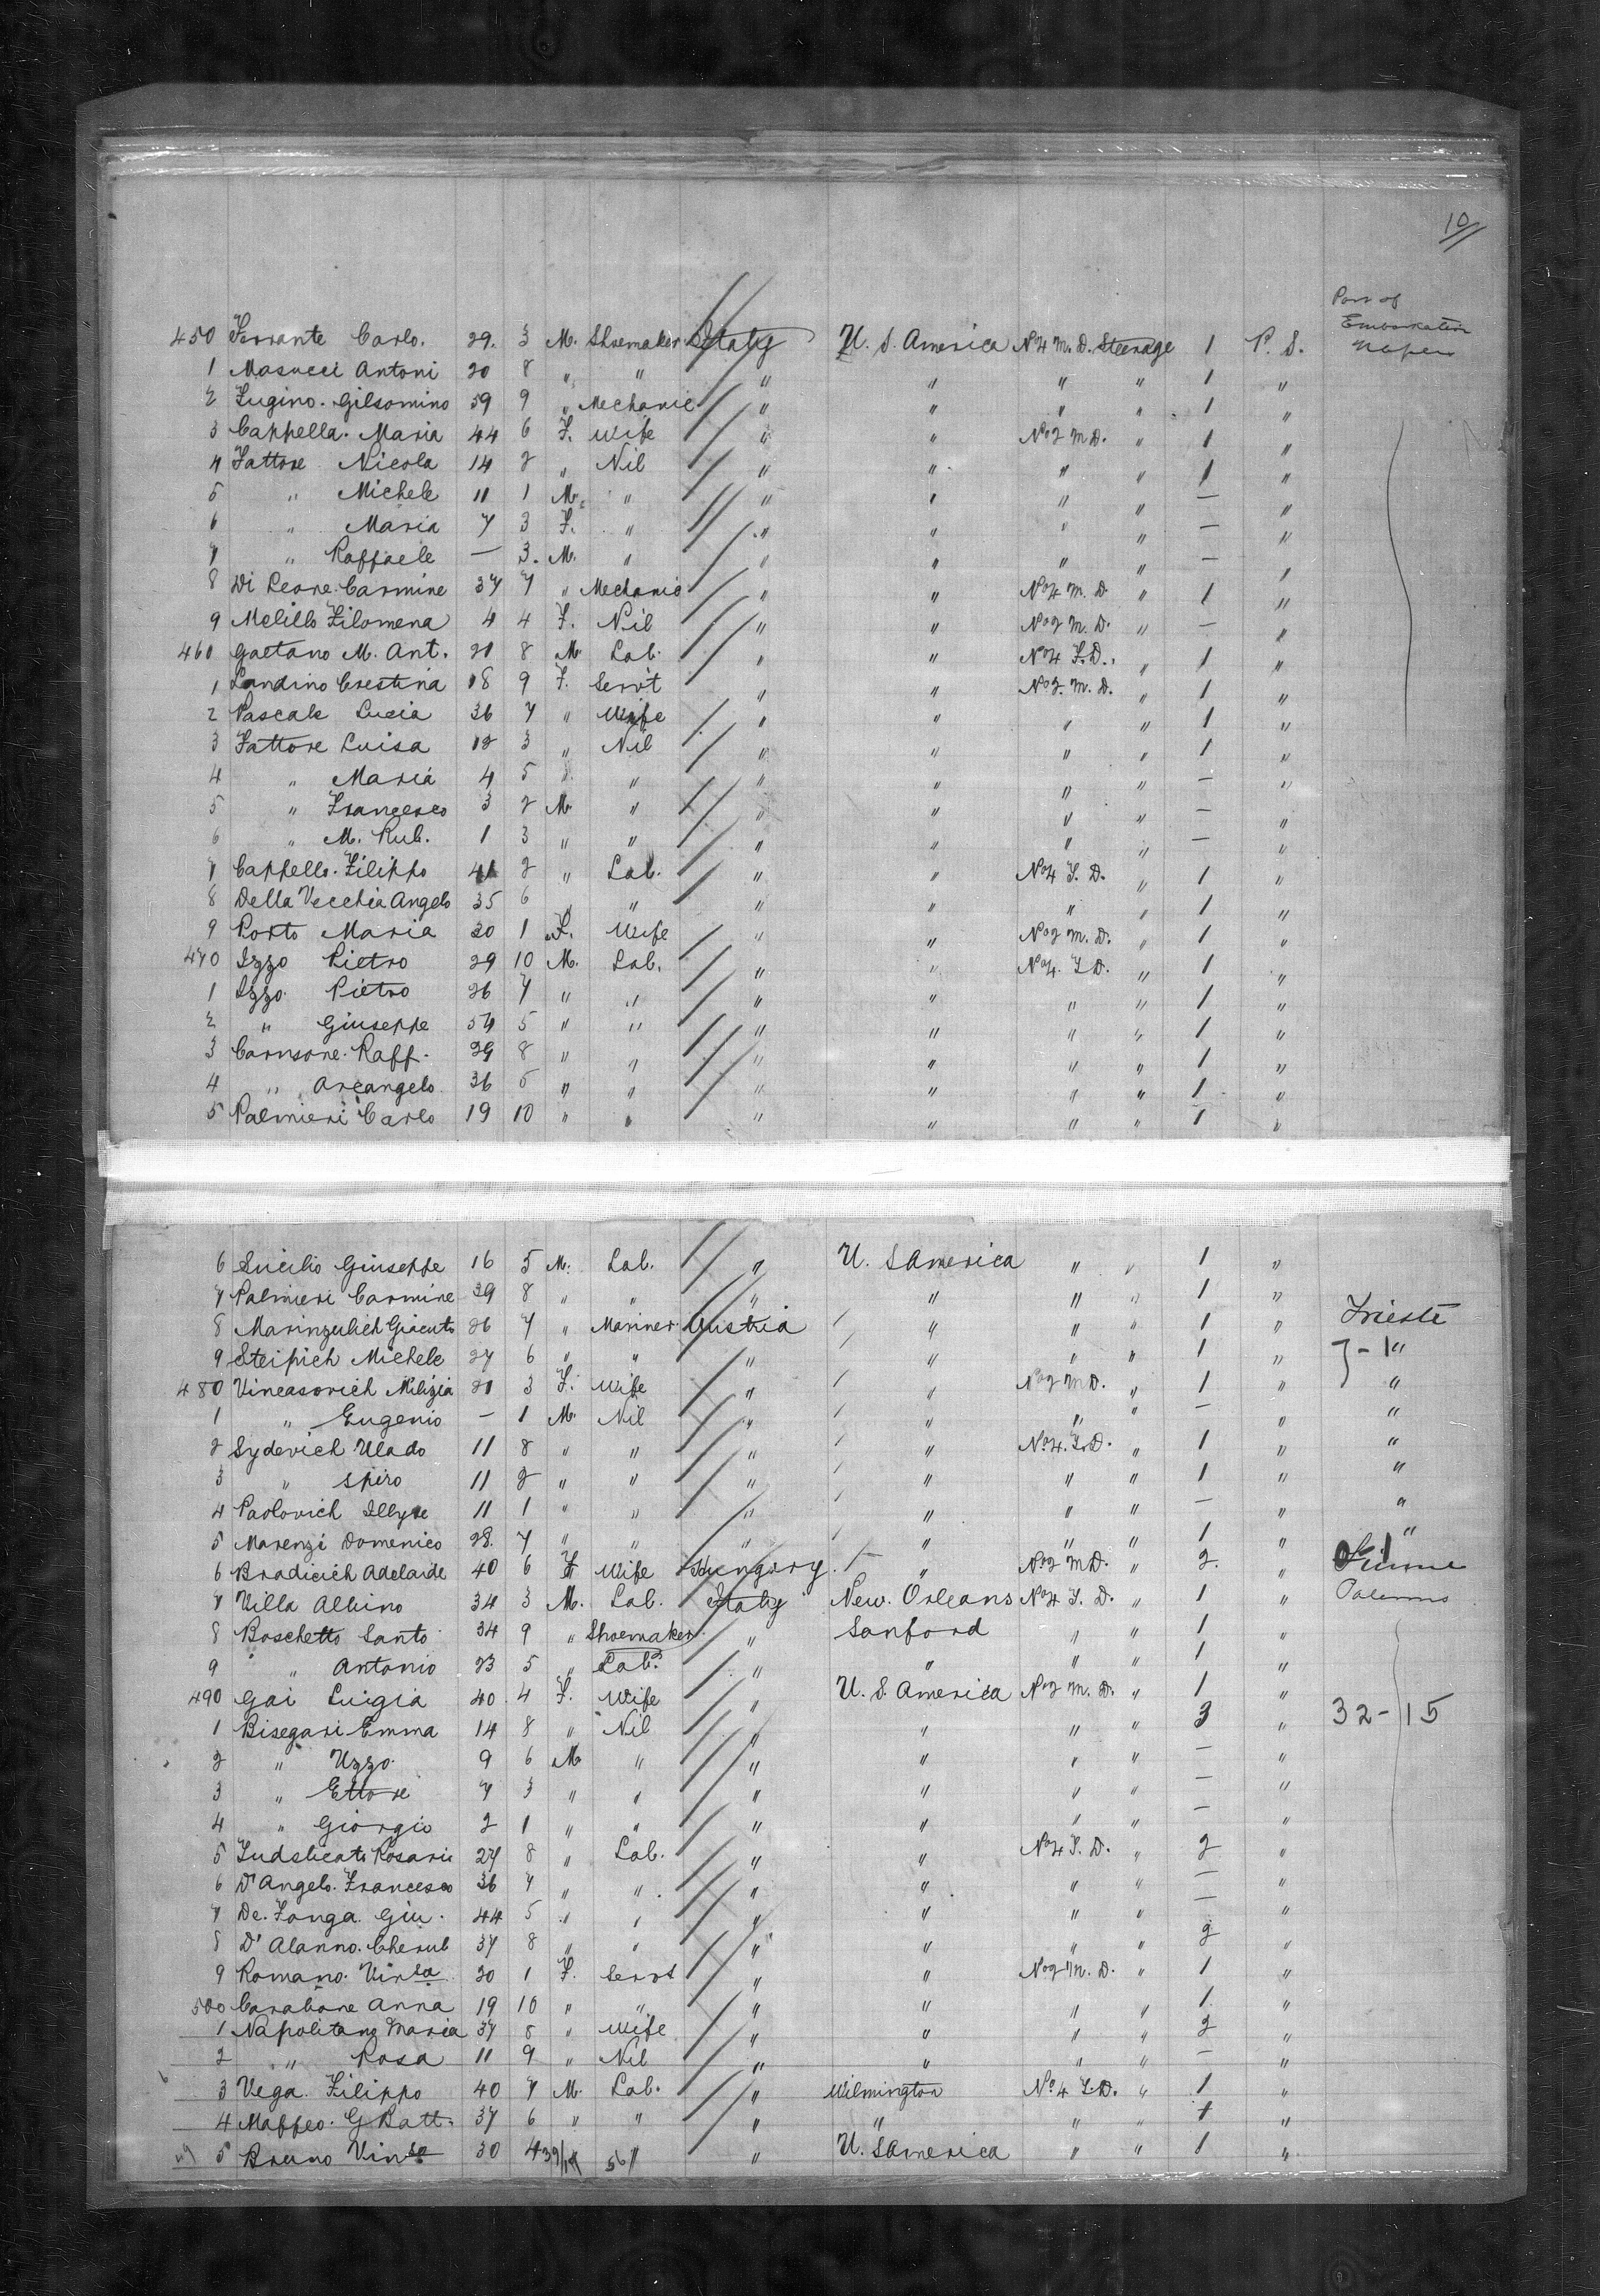 10
Port of
Embarkation
450 Ferrante Carlo. 29. 3 M. Shoemaker Italy U. S. America No 4 M. D. Steerage 1 P. S. Naples
1 Masucci Antoni 20 8 " " " " " " 1 "
2 Fugino. Gilsomino 59 9 " Mechanic " " " " 1 "
3 Cappella. Maria 44 6 F. Wife " " No 2 M D. " 1 "
4 Fattore Nicola 14 2 " Nil " " " " 1 "
5 " Michele 11 1 M. " " " " " — "
6 " Maria 7 3 F. " " " " " — "
7 " Raffaele — 3. M. " " " " " — "
8 Di Leone. Carmine 37 7 " Mechanic " " No 4 M. D " 1 "
9 Melillo Filomena 4 4 F. Nil " " No 2 M. D. " — "
460 Gaetano M. Ant. 20 8 M. Lab. " " No 4 S. D. " 1 "
1 Landino Crestina 18 9 F. Serv't " " No 2. M. D. " 1 "
2 Pascale Lucia 36 7 " Wife " " " " 1 "
3 Fattore Luisa 12 3 " Nil " " " " 1 "
4 " Maria 4 5 " " " " " — "
5 " Francesco 3 2 M. " " " " " — "
6 " M. Rub. 1 3 " " " " " " — "
7 Cappello. Filippo 41 2 " Lab. " " No 4 S. D. " 1 "
8 Della Vecchia Angelo 35 6 " " " " " " 1 "
9 Porto Maria 20 1 F. Wife " " No 2 M. D. " 1 "
470 Izzo Pietro 29 10 M. Lab. " " No 4. S D. " 1 "
1 Izzo. Pietro 26 7 " " " " " " 1 "
2 " Giuseppe 54 5 " " " " " " 1 "
3 Carnsone. Raff. 29 8 " " " " " " 1 "
4 " Arcangelo. 36 5 " " " " " " 1 "
5 Palmieri Carlo 19 10 " " " " " " 1 "
6 Sucilio Giuseppe 16 5 M. Lab. " U. S America " " 1 "
7 Palmieri Carmine 39 8 " " " " " " 1 "
8 Marinzulich Giacinto 26 7 " Mariner Austria " " " 1 " Trieste
9 Steipich Michele 27 6 " " " " " " 1 " } - 1 "
480 Vincasovich Milizia 20 3 F. Wife " " No 2 M D. " 1 " "
1 " Eugenio — 1 M. Nil " " " " — " "
2 Sydevich Ulado 11 8 " " " " No 4. S. D. " 1 " "
3 " Spiro 11 2 " " " " " " 1 " "
4 Paolovich Illyre 11 1 " " " " " " — " "
5 Marenzi Domenico 28. 7 " " " " " " 1 " "
6 Bradicich Adelaide 40 6 F Wife Hungary " No 2 M D. " 2. " Fiume
7 Villa Albino 34 3 M. Lab. Italy New Orleans No 4 S. D. " 1 " Palermo
8 Boschetto Santo 34 9 " Shoemaker " Sanford " " 1 "
9 " Antonio 23 5 " Lab. " " " " 1 "
490 Gai Luigia 40. 4 F. Wife " U. S. America No 2 M. D. " 1 "
1 Bisegari Emma 14 8 " Nil " " " " 3 " 32 - 15
2 " Uzzo. 9 6 M. " " " " " — "
3 " Ettore 7 3 " " " " " " — "
4 " Giorgio 2 1 " " " " " " — "
5 Rosario 27 8 " Lab. " " No 4 S. D. " 2 "
6 D'Angelo. Francesco 36 7 " " " " " " — "
7 De. Fonga. Giu. 44 5 " " " " " " — "
8 D'Alanno. Cherub 37 8 " " " " " " 2 "
9 Romano. Vinza 20 1 F. Servt " " No 2 M. D. " 1 "
500 Carabone Anna 19 10 " " " " " " 1 "
1 Napolitano Maria 37 8 " Wife " " " " 2 "
2 " Rosa 11 9 " Nil " " " " — "
3 Vega Filippo 40 7 M. Lab. " Wilmington No 4 S. D. " 1 "
4 Maffeo. G Batt. 37 6 " " " " " " 1 "
5 Bruno Vinzo 30 4 39/17 56 " " U. S America " " 1 "